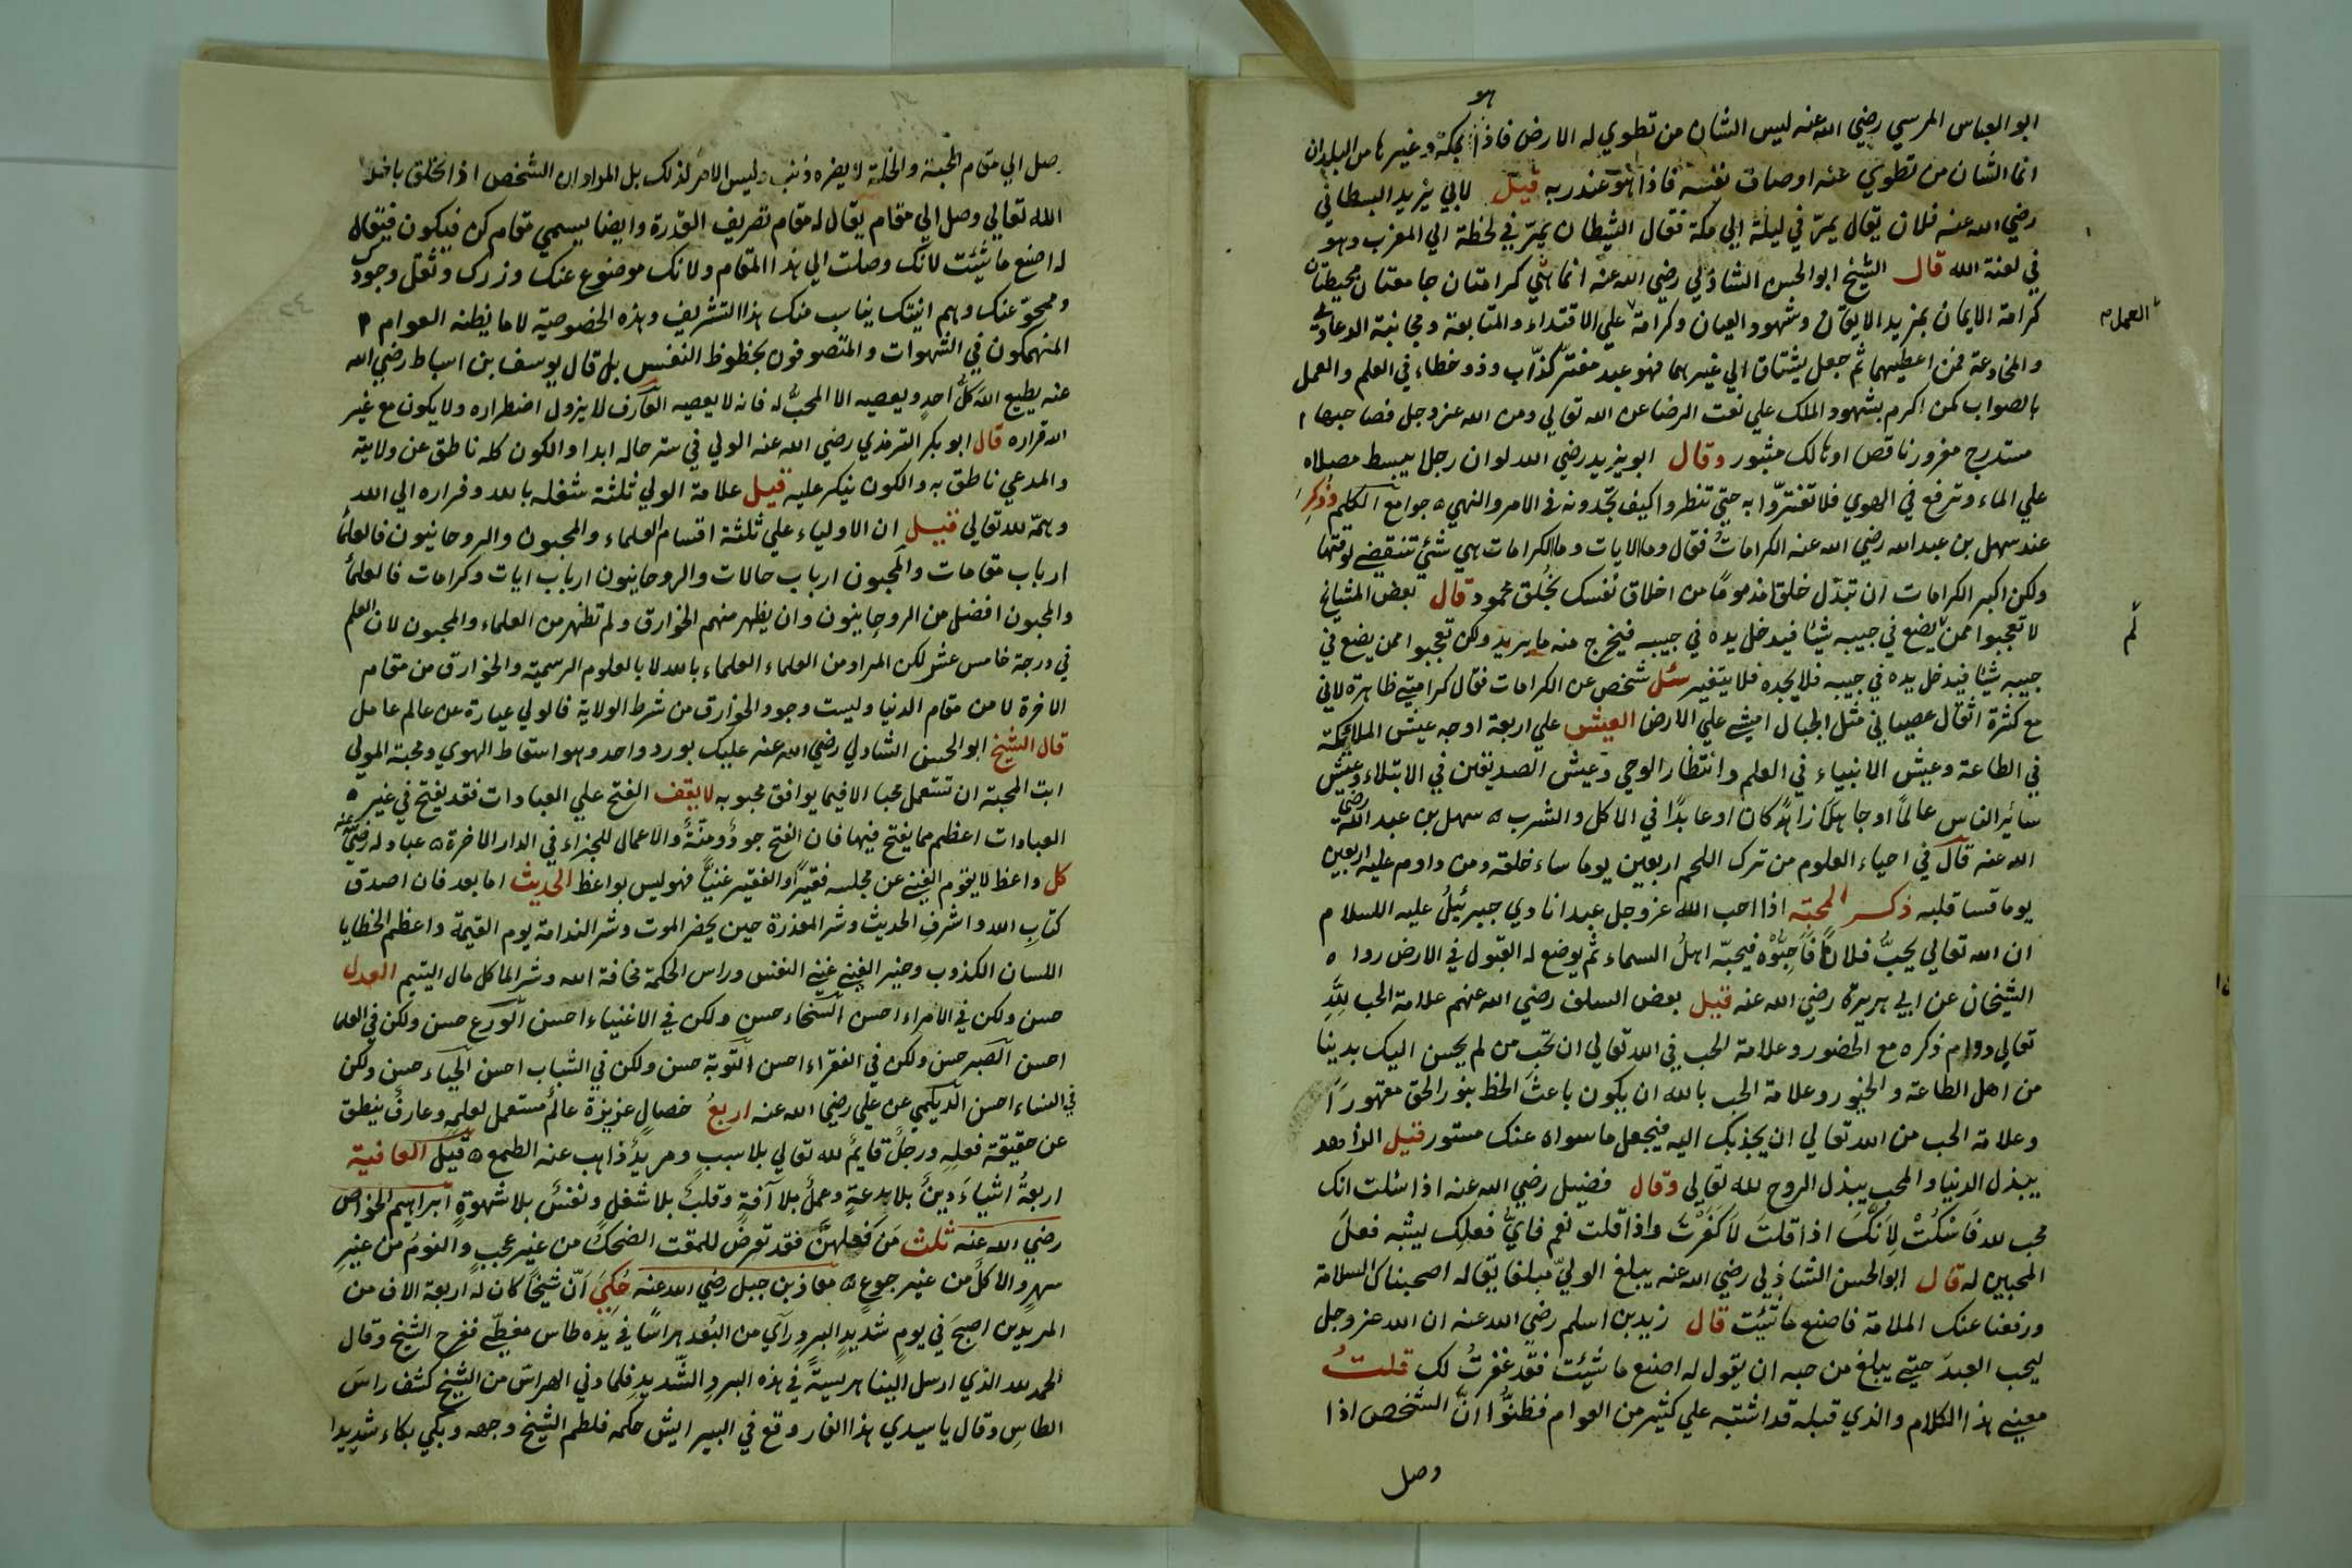 هو
ابو العباس المرسي رضي الله عنه ليس الشان من تطوي له الارض فاذا بمكة وغيرها من البلدان
انما الشان من تطوي عنه اوصاف نفسه فاذا هو عند ربه قيل لابي يزيد البسطامي
رضي الله عنه فلان يقال يمرّ في ليلة الي مكة فقال الشيطان يمرّ في لحظة الي المغرب وهو
في لعنة الله قال الشيخ ابو الحسن الشاذلي رضي الله عنه انما هي كرامتان جامعتان محيطتان
كرامة الايمان بمزيد الايقان وشهود العيان وكرامة علي الاقتداء والمتابعة ومجانبة الدعاوي
العمل
والمخادعة فمن اعطيهما ثم جعل يشتاق الي غيرهما فهو عبد مفتر كذّاب وذو خطاء في العلم والعمل
بالصواب كمن اكرم بشهود الملك علي نعت الرضا عن الله تعالي ومن الله عز وجل فصاحبها
مستدرج مغرور ناقص او هالك مثبور وقال ابو يزيد رضي الله لو ان رجلا يبسط مصلاه
علي الماء وترفع في الهوي فلا تغترّوا به حتي تنظروا كيف تجدونه في الامر والنهي ه جوامع الكلم وذكر
عند سهل بن عبد الله رضي الله عنه الكراماتُ فقال وما الايات وما الكرامات هي شئ تنقضي لوقتها
ولكن اكبر الكرامات ان تبدّل خلقا مذموما من اخلاق نفسك بخُلق محمود قال بعض المشايخ
لا تعجبوا ممن يضع في جيبه شيئا فيدخل يده في جيبه فيخرج منه ما يريد ولكن تعجبوا ممن يضع في
لم
جيبه شيئا فيدخل يده في جيبه فلا يجده فلا يتغير سئل شخص عن الكرامات فقال كرامتي ظاهرة لاني
مع كثرة اثقال عصياني مثل الجبال امشي علي الارض العيش علي اربعة اوجه عيش الملائكة
في الطاعة وعيش الانبياء في العلم وانتظار الوحي وعيش الصديقين في الابتلاء وعيش
سائر الناس عالمًا او جاهلا زاهدًا كان او عابدًا في الماكل والشرب ه سهل بن عبد الله رضي
الله عنه قال في احياء العلوم من ترك اللحم اربعين يوما ساء خلقه ومن داوم عليه اربعين
يوما قسا قلبه ذكر المحبة اذا احب الله عز وجل عبدا نادي جبرئيلُ عليه السلام
ان الله تعالي يحبُّ فلانًا فَاَحِبُّوْه فيحبّه اهلُ السماء ثم يوضع له القبول في الارض رواه
الشيخان عن ابي هريرة رضي الله عنه قيل بعض السلف رضي الله عنهم علامة الحب لِلّٰهِ
تعالي دوام ذكره مع الحضور وعلامة الحب في الله تعالي ان تحب من لم يحسن اليك بدينا
من اهل الطاعة و الخيور وعلامة الحب بالله ان يكون باعثَ الحظ بنور الحق مقهورًا
وعلامة الحب من الله تعالي ان يجذبك اليه فيجعل ما سواه عنك مستور قيل الزاهد
يبذل الدنيا والمحب يبذل الروح لله تعالي وقال فضيل رضي الله عنه اذا سُئلت انك
محب لله فَاسْكُتْ لِاَنَّكَ اذا قلتَ لا كَفَرْتَ واذا قلت نعم فايُّ فعلِك يشبه فعلَ
المحبين له قال ابو الحسن الشاذلي رضي الله عنه يبلغ الوليّ مبلغا يقال له اصحبناك السلامة
ورفعنا عنك الملامة فاصنع ما شئت قال زيد بن اسلم رضي الله عنه ان الله عز وجل
ليحب العبدَ حتي يبلغ من حبه ان يقول له اصنع ما شئت فقد غفرتُ لك قلتُ
معني هذا الكلام والذي قبله قد اشتبه علي كثير من العوام فظنُّوا انّ الشخص اذا
وصل
وصل الي مقام المحبة والخلة لا يضره ذنب وليس الامر لذلك بل المراد ان الشخص اذا تخلق باخلا
الله تعالي وصل الي مقام يقال له مقام تصريف القدرة وايضا يسمي مقام كن فيكون فيقال
له اصنع ما شئت لانك وصلت الي هذا المقام ولانك موضوع عنك وزرك وثقل وجودك
وممحوّ عنك وهم انيتك يناسب منك هذا التشريف وهذه الخصوصية لا ما يظنه العوام
المنهمكون في الشهوات والمتصوفون بحظوظ النفس بل قال يوسف بن اسباط رضي الله
عنه يطيع اللهَ كلُّ احدٍ ويعصيه الا المحبُّ له فانه لا يعصيه العارف لا يزول اضطراره ولا يكون مع غير
الله قراره قال ابو بكر الترمذي رضي الله عنه الولي في ستر حاله ابدا والكون كله ناطق عن ولايته
والمدعي ناطق به والكون ينكر عليه قيل علامة الولي ثلثة شغله بالله وفراره الي الله
وهمّه لله تعالي قيل ان الاولياء علي ثلثة اقسام العلماء والمحبون والروحانيون فالعلمأ
ارباب مقامات والمحبون ارباب حالات والروحانيون ارباب ايات وكرامات فالعلمأ
والمحبون افضل من الروحانيون وان يظهر منهم الخوارق ولم تظهر من العلماء والمحبون لان العلم
في درجة خامس عشر لكن المراد من العلماء العلماء بالله لا بالعلوم الرسمية والخوارق من مقام
الاخرة لا من مقام الدنيا وليست وجود الخوارق من شرط الولاية فالولي عبارة عن عالم عامل
قال الشيخ ابو الحسن الشاذلي رضي الله عنه عليك بورد واحد وهو اسقاط الهوي ومحبة المولي
ابت المحبة ان تستعمل محبا الا فيما يوافق محبوبه لا يقف الفتح علي العبادات فقد يفتح في غير
العبادات اعظم مما يفتح فيها فان الفتح جودٌ ومنّةٌ والاعمال للجزاء في الدار الاخرة ه عباد له رضي عنه
كل واعظ لا يقوم الغني عن مجلسه فقيرًا والفقير غنيًّا فهو ليس بواعظ الحديث اما بعد فان اصدق
كتاب الله واشرفِ الحديث وشر المعذرة حين يحضر الموت وشر الندامة يوم القيمة واعظم الخطايا
اللسان الكذوب وخير الغني غني النفس وراس الحكمة مخافة الله وشر الماكل مال اليتيم العدل
حسن ولكن في الامراء احسن السخاء حسن ولكن في الاغنياء احسن الورع حسن ولكن في العلما
احسن الصبر حسن ولكن في الفقراء احسن التوبة حسن ولكن في الشباب احسن الحياء حسن ولكن
في النساء احسن الديلمي عن علي رضي الله عنه اربعُ خصالٍ عزيزة عالمٌ مستعمل لعلمِه وعارفٌ ينطق
عن حقيقة فعلِهِ ورجلٌ قايمٌ لله تعالي بلا سببٍ ومريدٌ ذاهب عنه الطمع ه قيل العافية
اربعةُ اشياءَ دينٌ بلا بدعةٍ وعملٌ بلا آفةٍ وقلبٌ بلا شغل ونفسٌ بلا شهوةٍ ابراهيم الخواص
رضي الله عنه ثلث مَن فعلهنّ فقد تعرضَ للمقت الضحكُ من غير عجبٍ والنومُ من غيرِ
سهرٍ والاكلُ من غير جوعٍ ه معاذ بن جبل رضي الله عنه حُكِيَ اَنّ شيخًا كان له اربعة الاف من
المريدين اصبحَ في يومٍ شديدِ البردِ وراَي من البُعد هرّاسًا في يده طاس مغطّي ففرح الشيخ وقال
الحمد لله الذي ارسل الينا هريسةً في هذه البردِ الشّديدِ فلما دني الهراسُ من الشيخ كشف راسَ
الطاسِ وقال يا سيدي هذا الفار وقع في البير ايش حكمه فلطم الشيخ وجهه وبكي بكاء شديدا